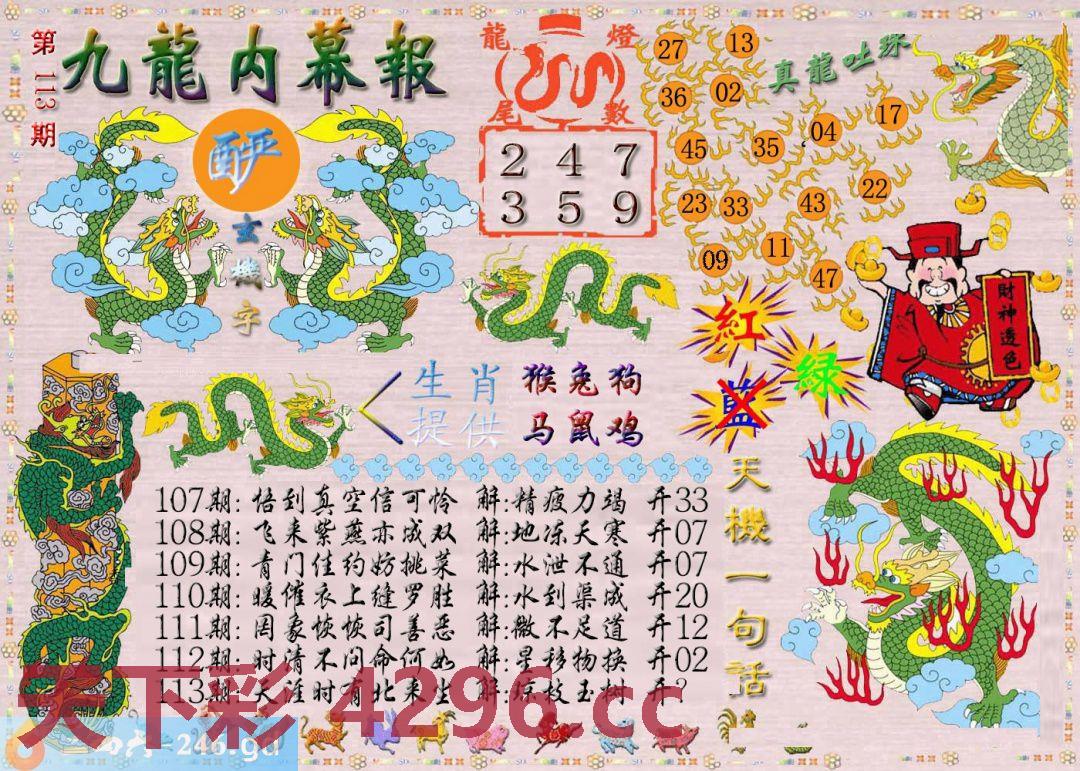 第113期
九龍内幕報
龍尾
燈數
2 4 7
3 5 9
27 13
36 02
真龍吐珠
45 35 04 17
23 33 43 22
09 11 47
玄機字
紅
綠
藍
財神透色
生肖提供
猴兔狗
马鼠鸡
天機一句話
107期:悟到真空信可怜 解:精疲力竭 开33
108期:飞来紫燕亦成双 解:地冻天寒 开07
109期:青门佳约妨挑菜 解:水泄不通 开07
110期:暖催衣上缝罗胜 解:水到渠成 开20
111期:罔象恢恢司善恶 解:微不足道 开12
112期:时清不问命何如 解:星移物换 开02
113期:天涯时有北来生 解:琼枝玉树 开?
天下彩 4296.cc
=246.gd